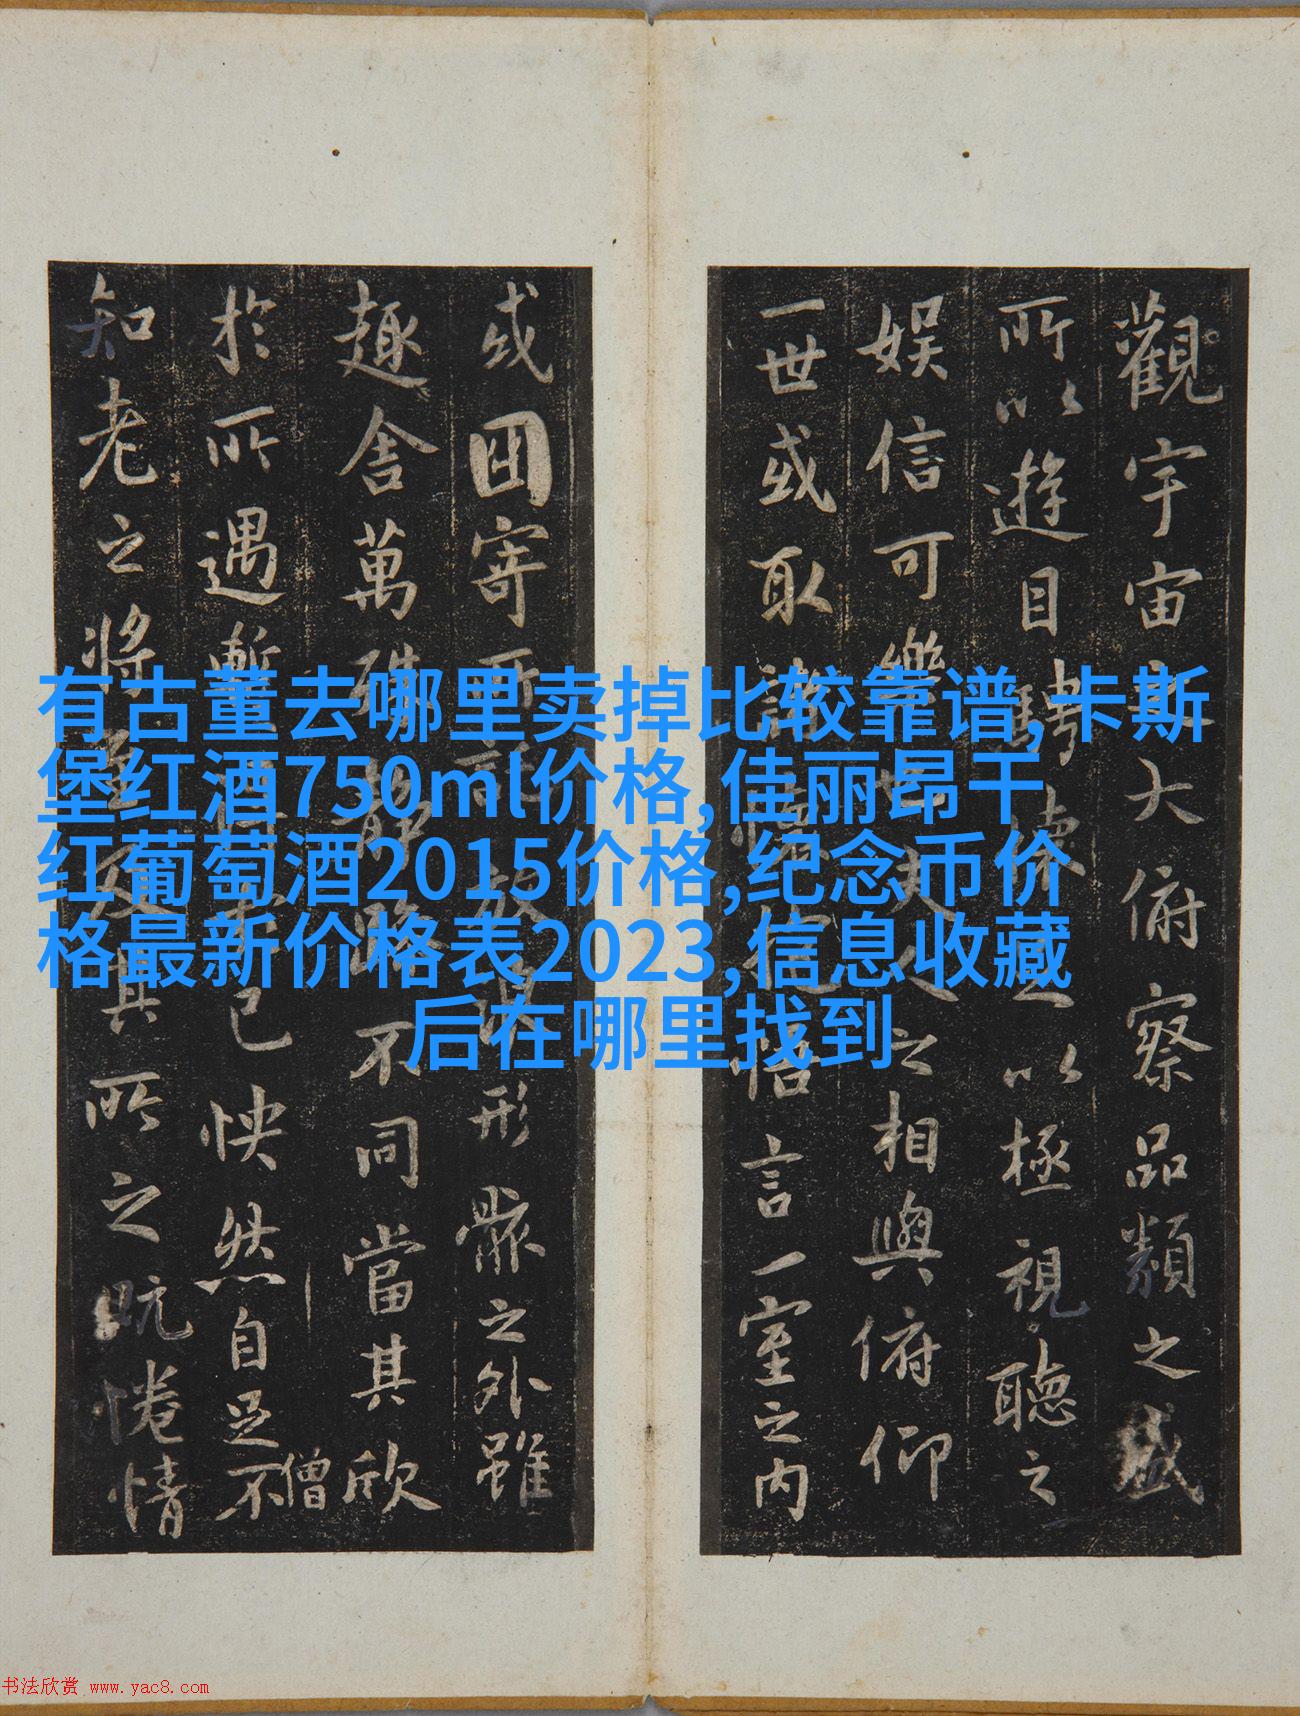 觀宇宙之大俯察品類之盛
所以遊目騁懷足以極視聽之
娛信可樂也夫人之相與俯仰
一世或取諸懷抱悟言一室之內
或因寄所託放浪形骸之外雖
趣舍萬殊靜躁不同當其欣
僧
於所遇暫得於己怏然自足不
知老之將至及其所之既惓情
有古董去哪里卖掉比较靠谱,卡斯
堡红酒750ml价格,佳丽昂干
红葡萄酒2015价格,纪念币价
格最新价格表2023,信息收藏
后在哪里找到
书法欣赏 www.yac8.com